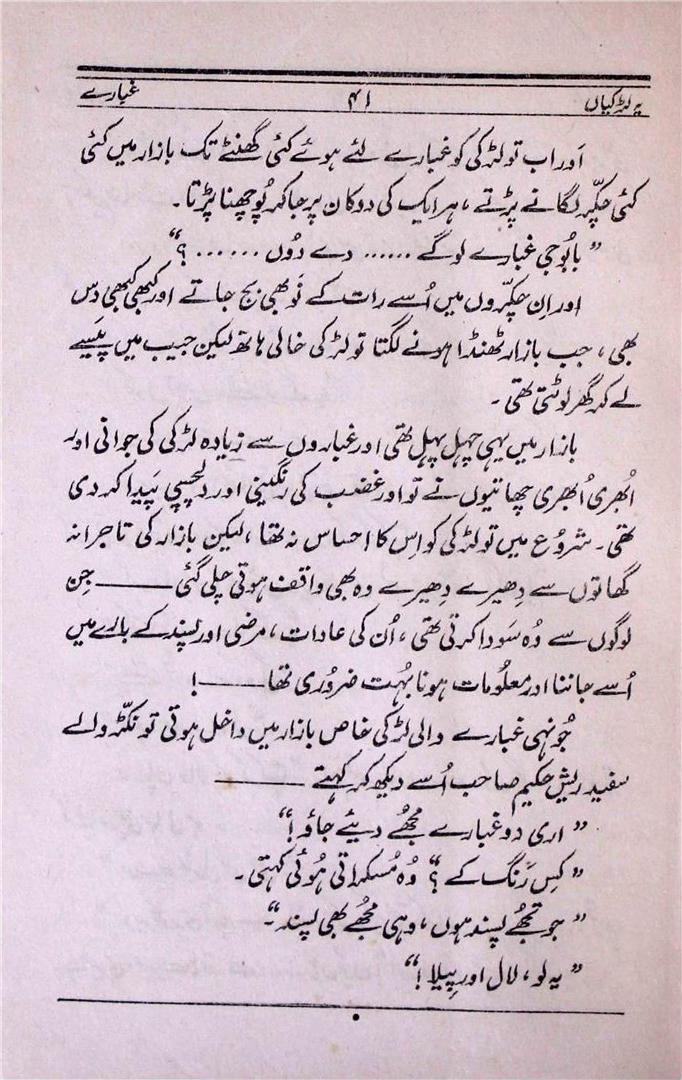 یہ لڑکیاں ۴۱ غبارے
اَور اب تو لڑکی کو غبارے لئے ہوئے کئی گھنٹے تک بازار میں کئی
کئی چکّر لگانے پڑتے، ہر ایک کی دوکان پر جا کر پُوچھنا پڑتا۔
”بابُوجی غبارے لوگے ...... دے دُوں ......؟“
اور اِن چکّروں میں اُسے رات کے نَو بھی بج جاتے اور کبھی کبھی دس
بھی، جب بازار ٹھنڈا ہونے لگتا تو لڑکی خالی ہاتھ لیکن جیب میں پیَسے
لے کر گھر لوٹتی تھی۔
بازار میں یہی چہل پہل تھی اور غباروں سے زیادہ لڑکی کی جوانی اور
اُبھری اُبھری چھاتیوں نے تو اور غضب کی رنگینی اور دلچسپی پَیدا کر دی
تھی۔ شروُع میں تو لڑکی کو اِس کا احساس نہ تھا، لیکن بازار کی تاجرانہ
گھاتوں سے دِھیرے دِھیرے وہ بھی واقف ہوتی چلی گئی ——— جِن
لوگوں سے وُہ سَودا کرتی تھی، اُن کی عادات، مرضی اور پسند کے بارے میں
اُسے جاننا اور معلُومات ہونا بہُت ضروُری تھا ———!
جُونہی غبارے والی لڑکی خاص بازار میں داخل ہوتی تو نکّڑ والے
سفید ریش حکیم صاحب اُسے دیکھ کر کہتے ———
”اری دو غبارے مجُھے دیئے جاؤ!“
”کِس رَنگ کے؟“ وُہ مُسکراتی ہوُئی کہتی۔
”جو تجُھے پسند ہوں، وہی مجُھے بھی پسند“۔
”یہ لو، لال اور پِیلا!“